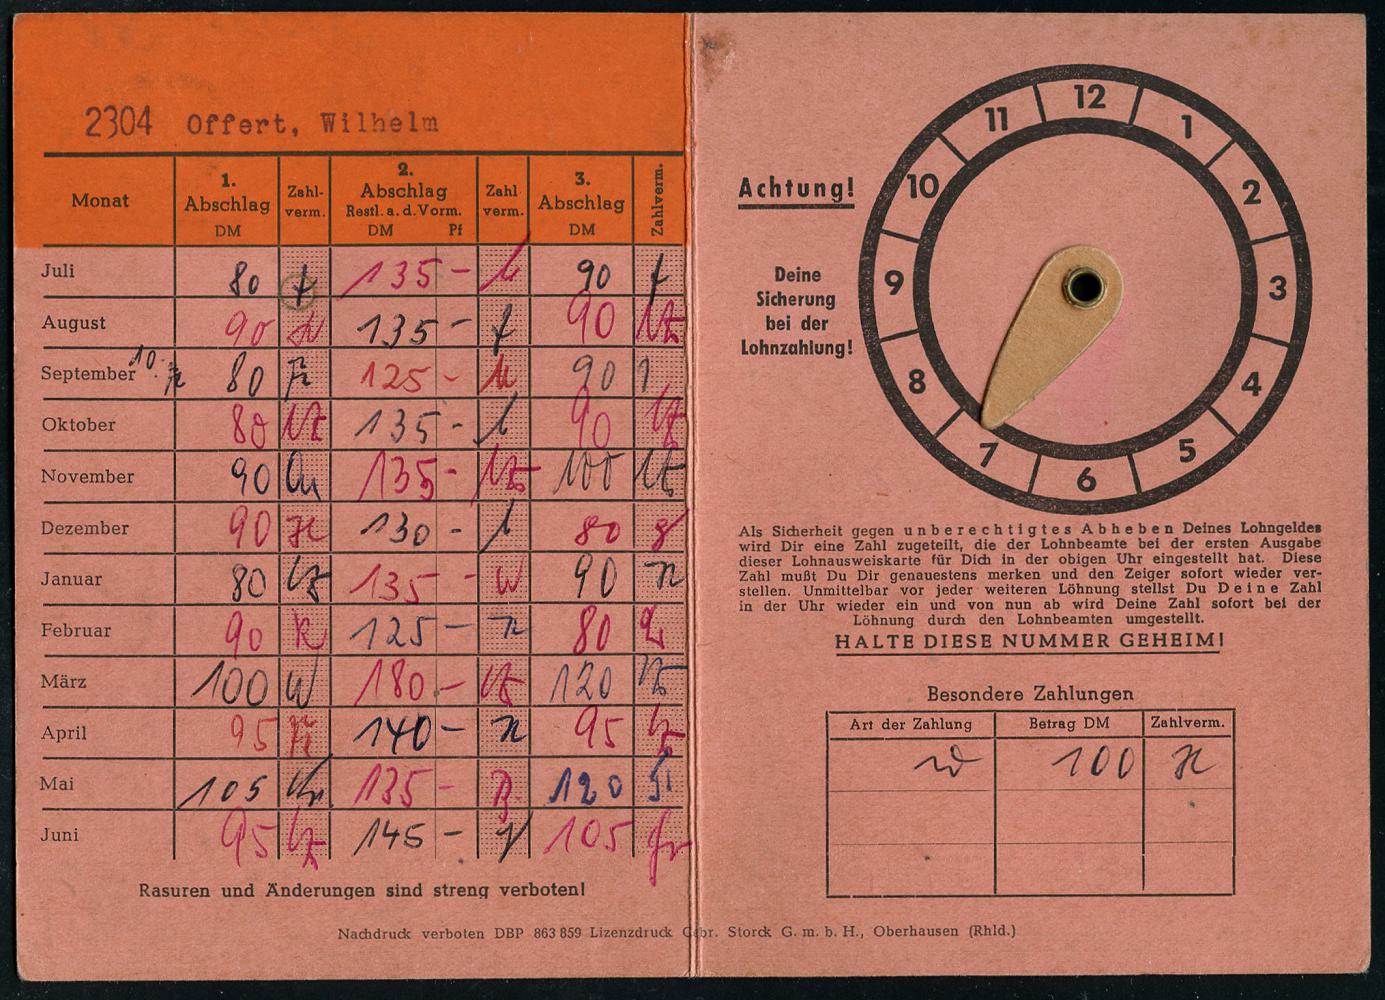 2304 Offert, Wilhelm
Monat 1. Abschlag DM Zahl-verm. 2. Abschlag Restl. a. d. Vorm. DM Pf Zahl verm. 3. Abschlag DM Zahlverm.
Juli 80 135 - 90
August 90 135 - 90
September 10. 80 125 - 90
Oktober 80 135 - 90
November 90 135 - 100
Dezember 90 130 - 80
Januar 80 135 - 90
Februar 90 125 - 80
März 100 180 - 120
April 95 140 - 95
Mai 105 135 - 120
Juni 95 145 - 105
Rasuren und Änderungen sind streng verboten!
Achtung!
Deine
Sicherung
bei der
Lohnzahlung!
12
1
2
3
4
5
6
7
8
9
10
11
Als Sicherheit gegen unberechtigtes Abheben Deines Lohngeldes
wird Dir eine Zahl zugeteilt, die der Lohnbeamte bei der ersten Ausgabe
dieser Lohnausweiskarte für Dich in der obigen Uhr eingestellt hat. Diese
Zahl mußt Du Dir genauestens merken und den Zeiger sofort wieder ver-
stellen. Unmittelbar vor jeder weiteren Löhnung stellst Du Deine Zahl
in der Uhr wieder ein und von nun ab wird Deine Zahl sofort bei der
Löhnung durch den Lohnbeamten umgestellt.
HALTE DIESE NUMMER GEHEIM!
Besondere Zahlungen
Art der Zahlung Betrag DM Zahlverm.
100
Nachdruck verboten DBP 863 859 Lizenzdruck Gebr. Storck G. m. b. H., Oberhausen (Rhld.)